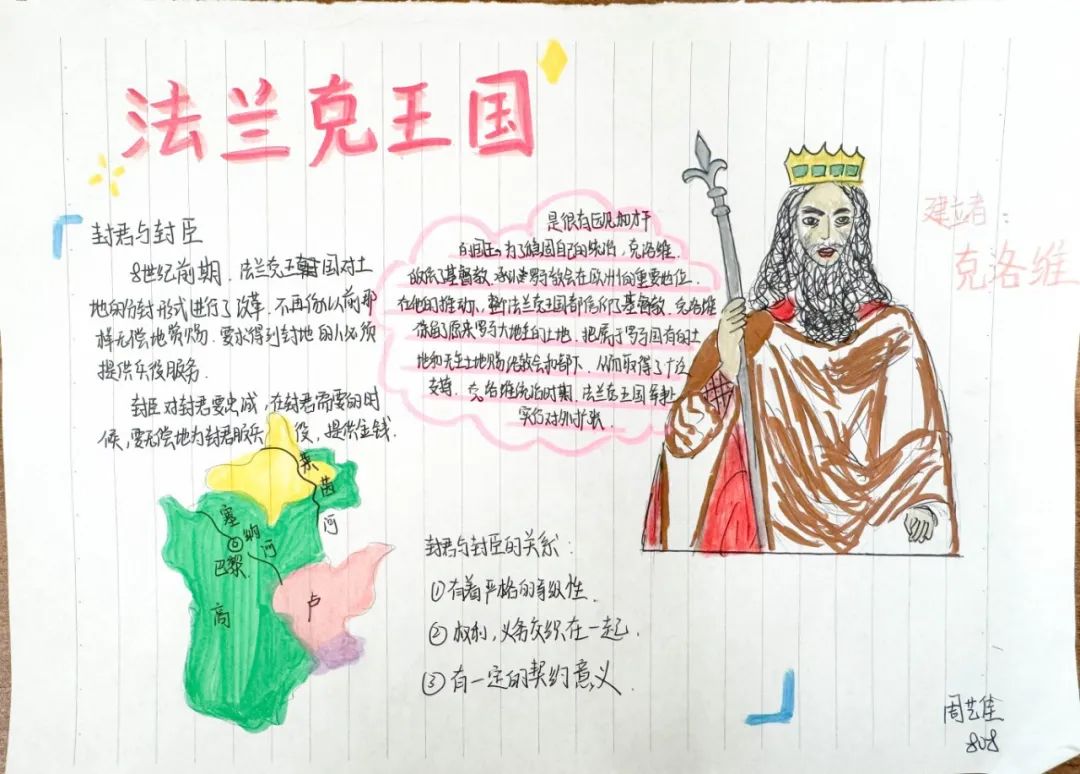 法兰克王国
封君与封臣
8世纪前期，法兰克王国对土
地的分封形式进行了改革，不再像以前那
样无偿地赏赐，要求得到封地的人必须
提供兵役服务.
封臣对封君要忠诚，在封君需要的时
候，要无偿地为封君服兵役，提供金钱.
是很有远见和才干
的国王。为了稳固自己的统治，克洛维
皈依了基督教，承认罗马教会在欧洲的重要地位.
在他的推动下，整个法兰克王国都信仰了基督教，克洛维
保留原来罗马大地主的土地，把属于罗马国有的土
地和无主土地赐给教会和部下，从而取得了广泛
支持。克洛维统治时期，法兰克王国
实行对外扩张.
建立者：
克洛维
莱茵河
塞纳河
巴黎
高卢
封君与封臣的关系：
①有着严格的等级性.
②权利，义务交织在一起.
③有一定的契约意义.
周艺佳
808